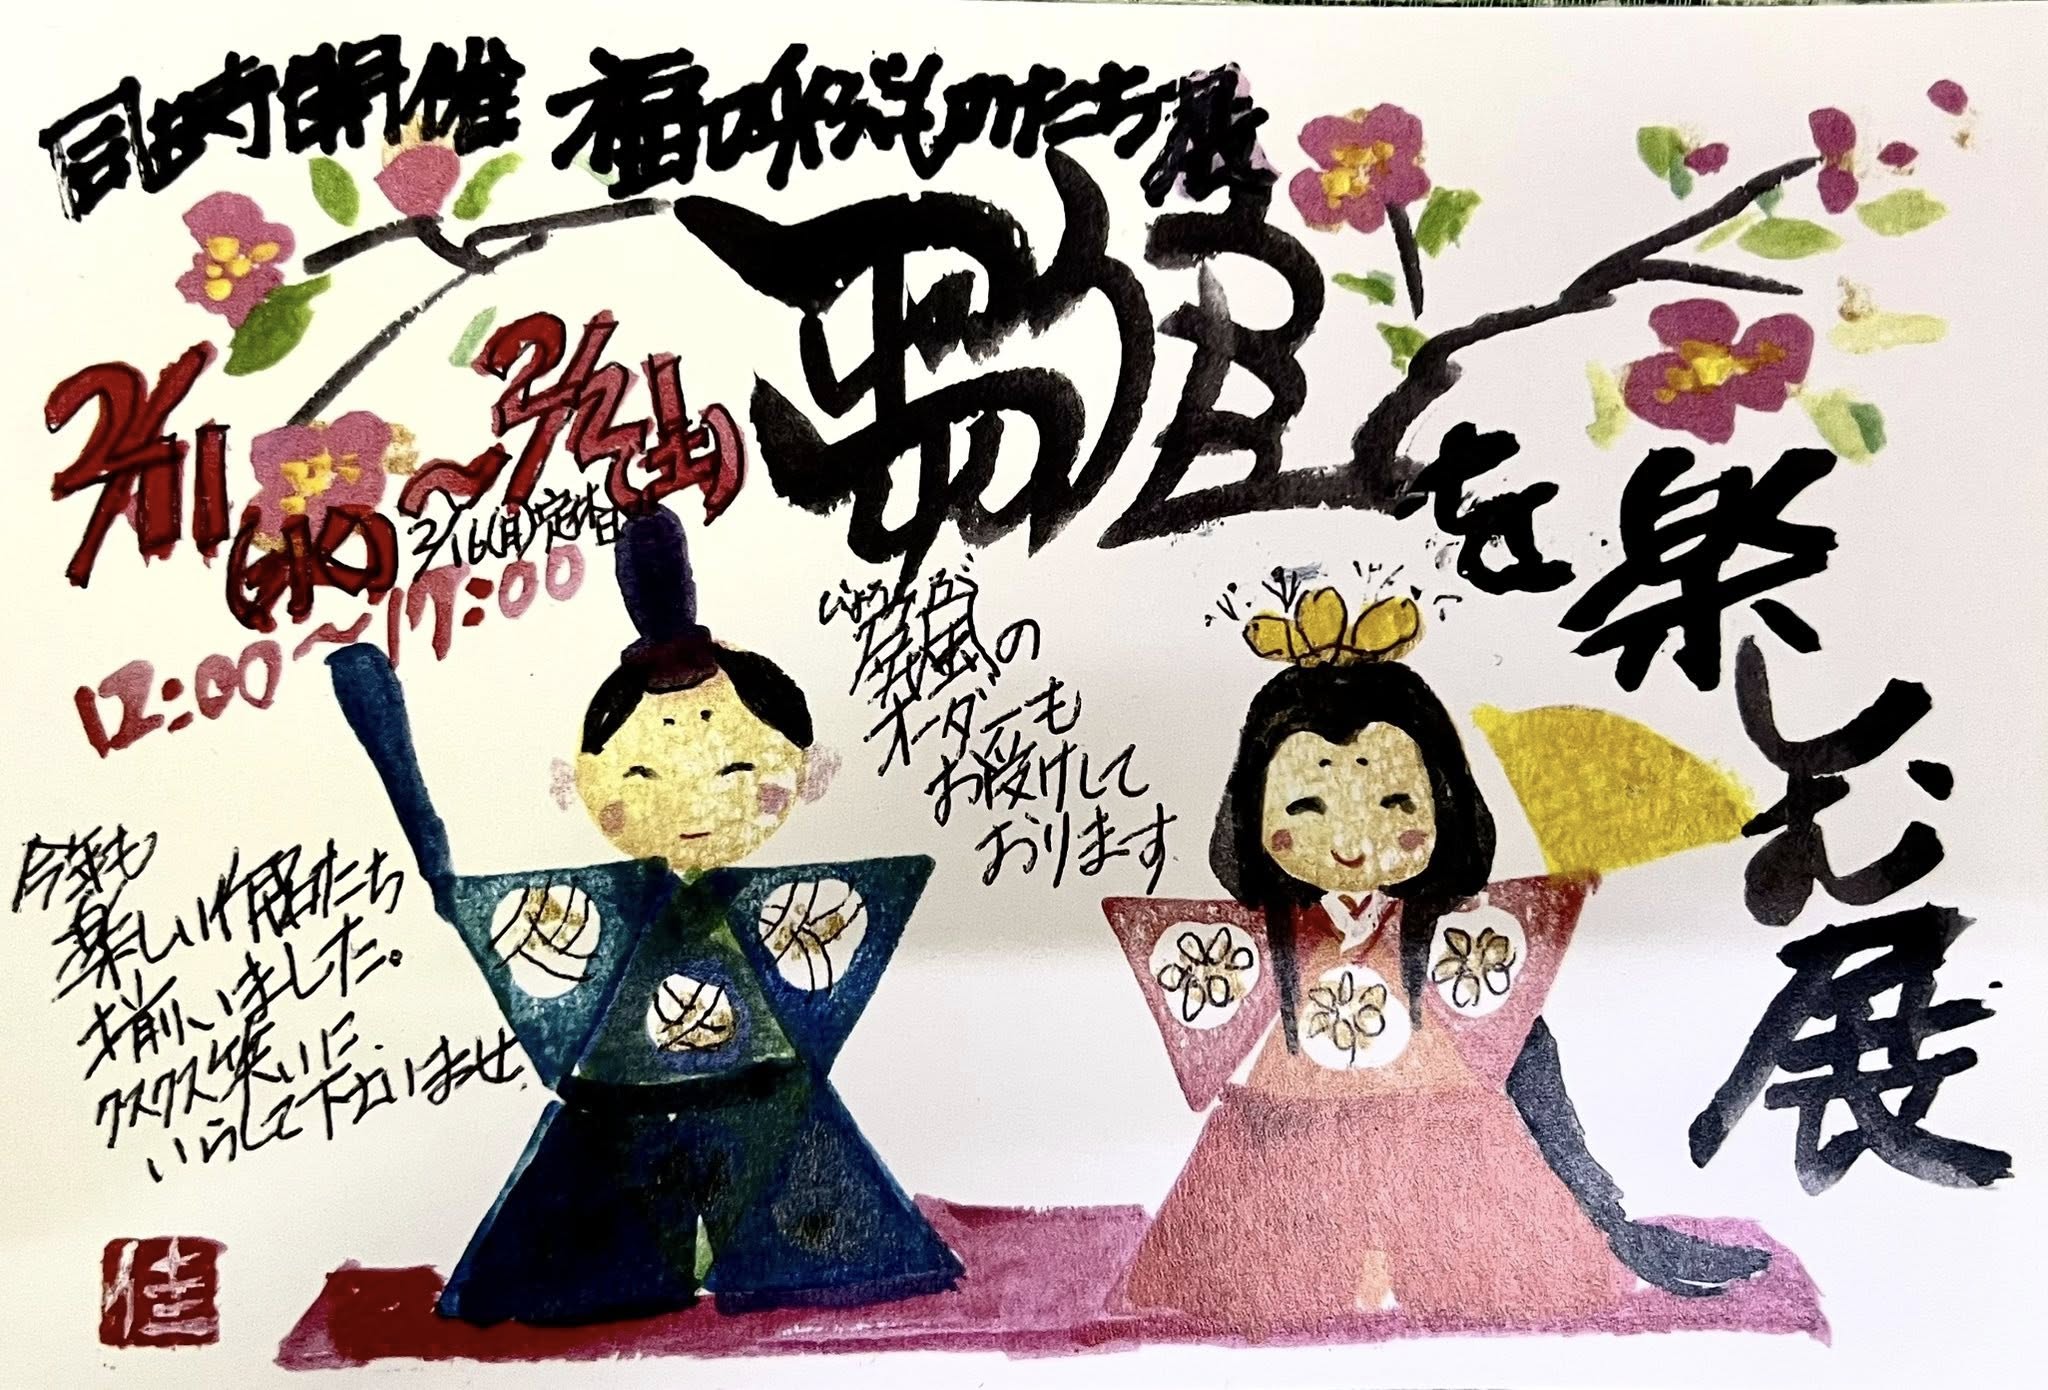 同時開催 福呼ぶものたち展
雛
を楽しむ展
2/11(水)～2/21(土)
2/16(月)定休日
12:00～17:00
びょうぶ
屏風の
オーダーも
お受けして
おります
今年も
楽しい作品たち
揃いました。
クスクス笑いに
いらして下さいませ
佳